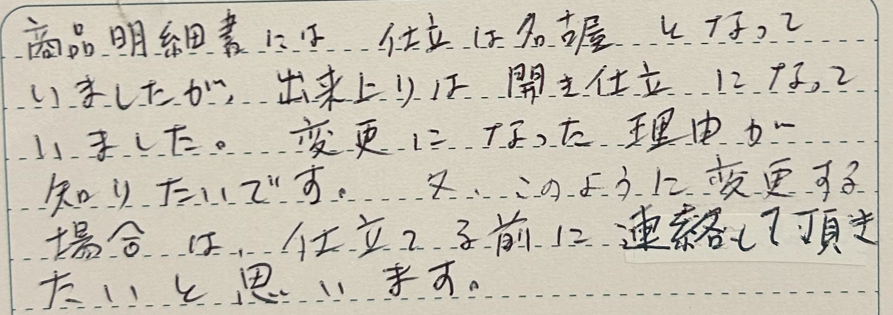 商品明細書には 仕立は名古屋となって
いましたが、出来上りは開き仕立になって
いました。変更になった理由が
知りたいです。又、このように変更する
場合は、仕立てる前に連絡して頂き
たいと思います。